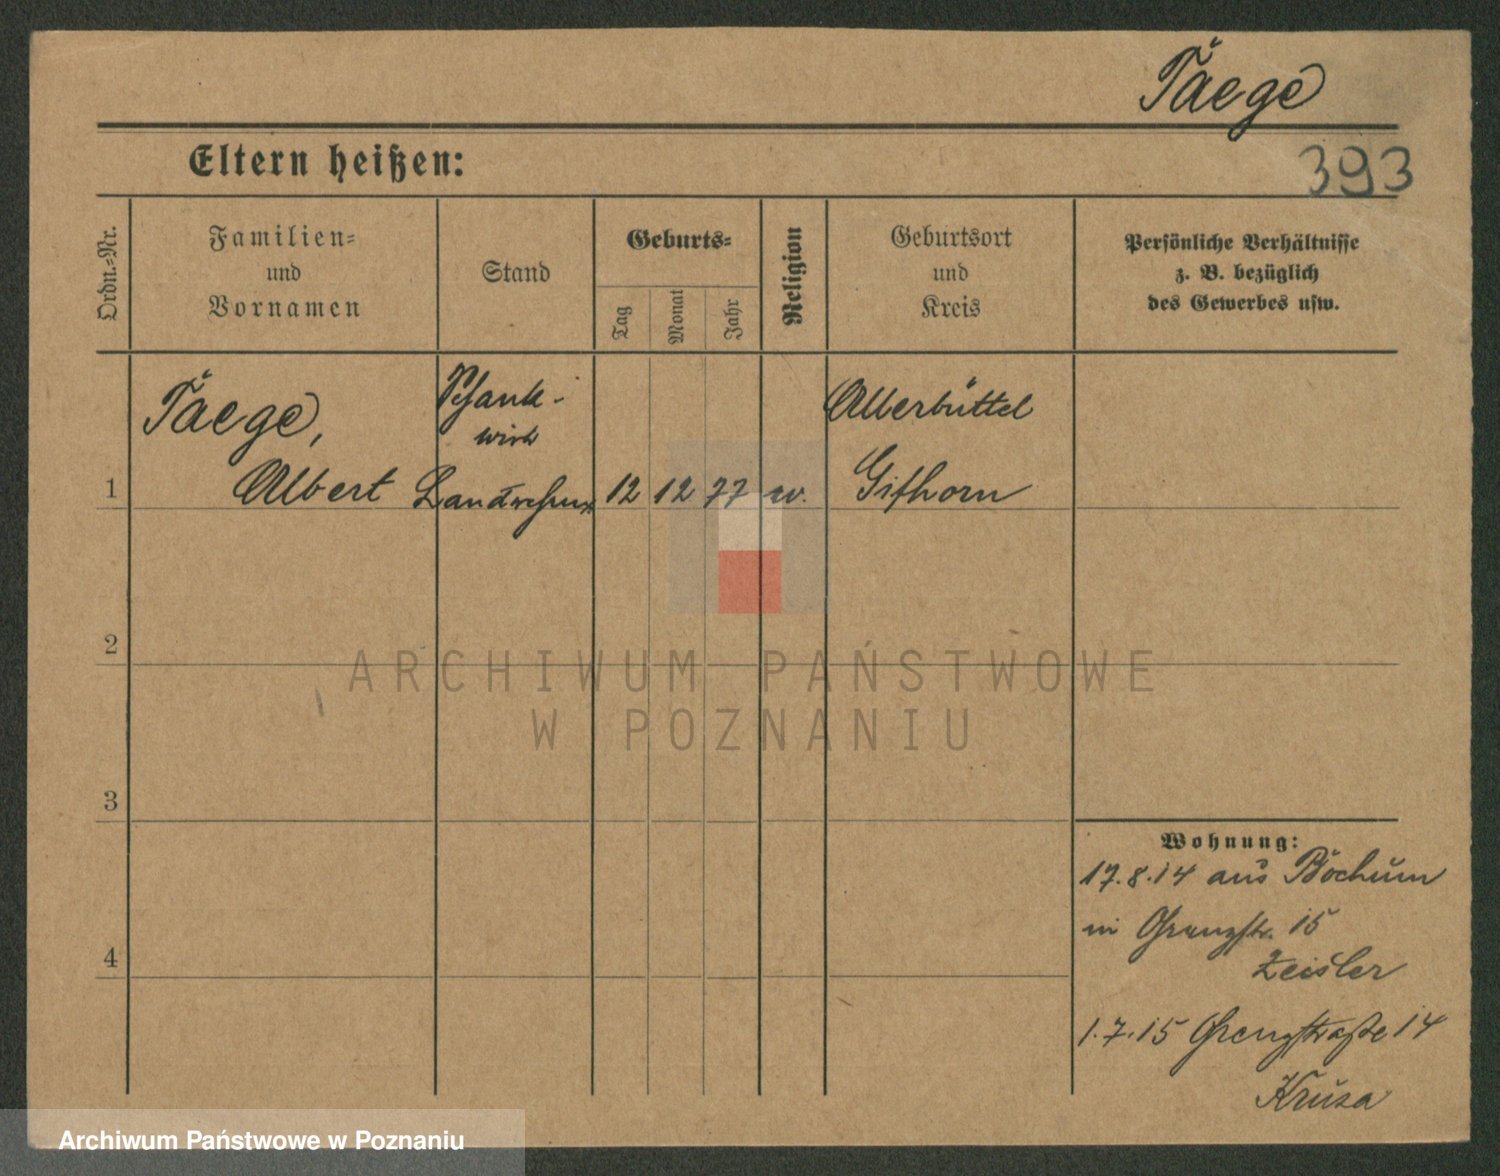 Taege
Eltern heißen:
393
Ordn.=Nr.
Familien=
und
Vornamen
Stand
Geburts=
Tag
Monat
Jahr
Religion
Geburtsort
und
Kreis
Persönliche Verhältnisse
z. B. bezüglich
des Gewerbes usw.
Taege,
Schank-
wirt
Allerbüttel
1
Albert
12 12 77 ev.
Gifhorn
2
ARCHIWUM PAŃSTWOWE
W POZNANIU
3
Wohnung:
17.8.14 aus Bochum
in Grenzstr. 15
4
Zeisler
1.7.15 Grenzstraße 14
Krusa
Archiwum Państwowe w Poznaniu